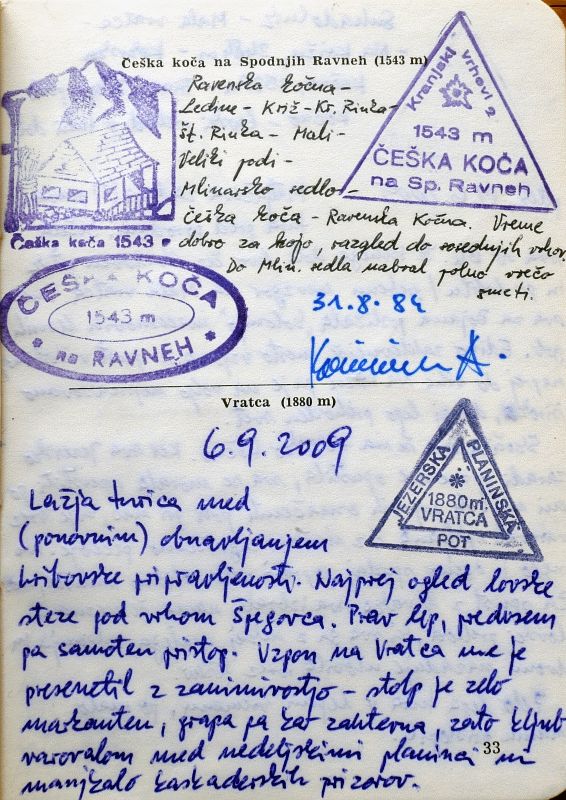 Češka koča na Spodnjih Ravneh (1543 m)
Ravenska Kočna -
Ledine - Križ - Kr. Rinka -
Št. Rinka - Mali -
Veliki podi -
Mlinarsko sedlo -
Češka koča - Ravenska Kočna. Vreme
dobro za hojo, razgled do sosednjih vrhov.
Do Mlin. sedla nabral polno vrečo
smeti.
31.8.84
Kranjski vrhovi 2
1543 m
ČEŠKA KOČA
na Sp. Ravneh
Češka koča 1543
ČEŠKA KOČA
1543 m
* na RAVNEH *
Vratca (1880 m)
6.9.2009
JEZERSKA PLANINSKA POT
1880 m.
VRATCA
Lažja turica med
(ponovnim) obnavljanjem
hribovske pripravljenosti. Najprej ogled lovske
steze pod vrhom Špegovca. Prav lep, predvsem
pa samoten pristop. Vzpon na Vratca me je
presenetil z zanimivostjo - stolp je zelo
markanten, grapa pa kar zahtevna, zato kljub
varovalom med nedeljskimi planinci ni
manjkalo kaskaderskih prizorov.
33